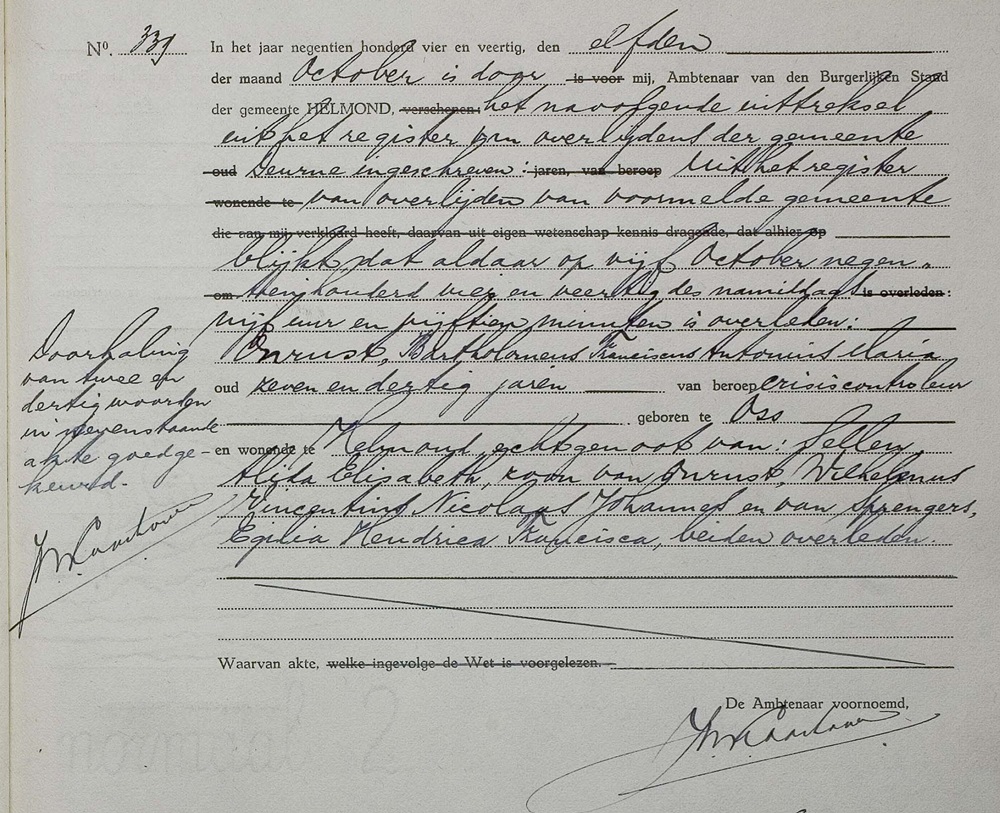 Nº. 339 In het jaar negentien honderd vier en veertig, den elfden
der maand October is door is voor mij, Ambtenaar van den Burgerlijken Stand
der gemeente HELMOND, verschenen: het navolgende uittreksel
uit het register van overlijdens der gemeente
oud Deurne ingeschreven: jaren, van beroep Uit het register
wonende te van overlijden van voormelde gemeente
die aan mij verklaard heeft, daarvan uit eigen wetenschap kennis dragende, dat alhier op
blijkt, dat aldaar op vijf October negen-
om tienhonderd vier en veertig des namiddags is overleden:
vijf uur en vijftien minuten is overleden:
Onrust, Bartholomeus Franciscus Antonius Maria
oud zeven en dertig jaren van beroep crisiscontroleur
geboren te Oss
en wonende te Helmond, echtgenoot van: Sellen,
Alida Elisabeth, zoon van Onrust, Wilhelmus
Vincentius Nicolaas Johannes en van Sprengers,
Egilia Hendrica Francisca, beiden overleden.
Waarvan akte, welke ingevolge de Wet is voorgelezen.
De Ambtenaar voornoemd,
Doorhaling
van twee en
dertig woorden
in nevenstaande
akte goedge-
keurd.